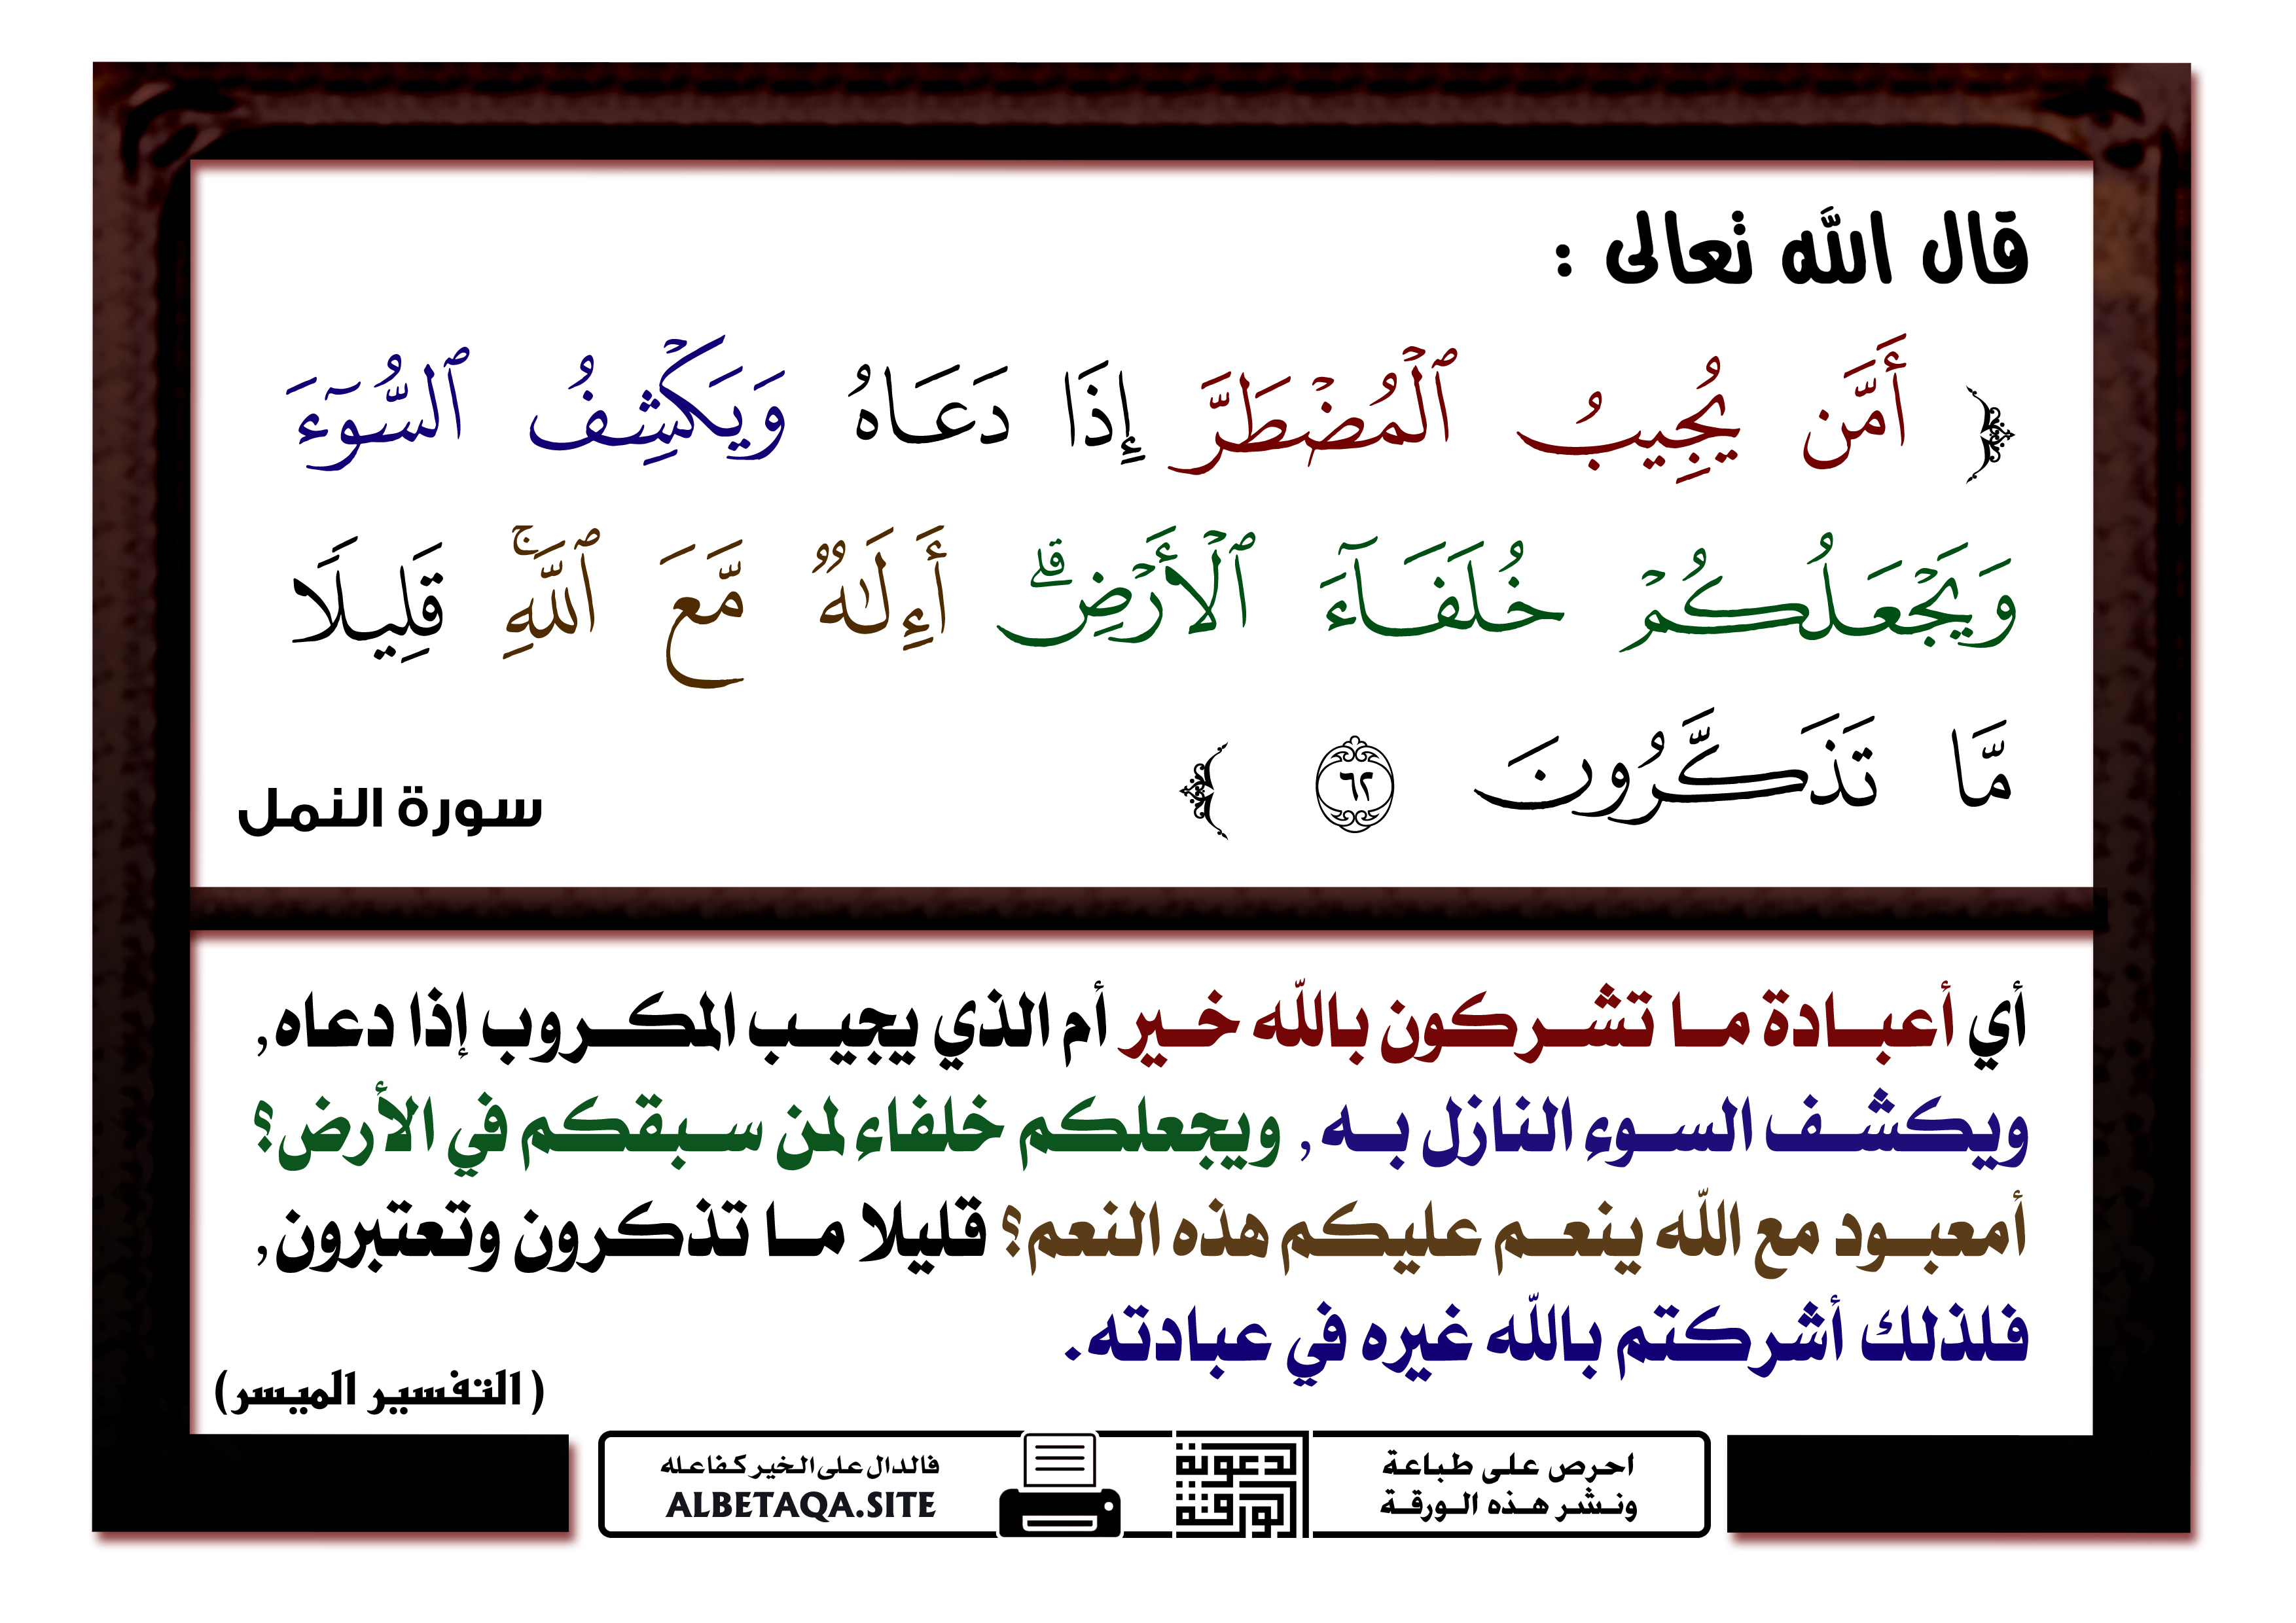 قال الله تعالى :
﴿ أَمَّن يُجِيبُ ٱلْمُضْطَرَّ إِذَا دَعَاهُ وَيَكْشِفُ ٱلسُّوٓءَ
وَيَجْعَلُكُمْ خُلَفَآءَ ٱلْأَرْضِ ۗ أَءِلَٰهٌ مَّعَ ٱللَّهِ ۚ قَلِيلًا
مَّا تَذَكَّرُونَ ٦٢ ﴾
سورة النمل
أي أعبادة ما تشركون بالله خير أم الذي يجيب المكروب إذا دعاه,
ويكشف السوء النازل به, ويجعلكم خلفاء لمن سبقكم في الأرض؟
أمعبود مع الله ينعم عليكم هذه النعم؟ قليلا ما تذكرون وتعتبرون,
فلذلك أشركتم بالله غيره في عبادته.
( التفسير الميسر)
احرص على طباعة
ونشر هذه الورقة
الورقة الدعوية
فالدال على الخير كفاعله
ALBETAQA.SITE